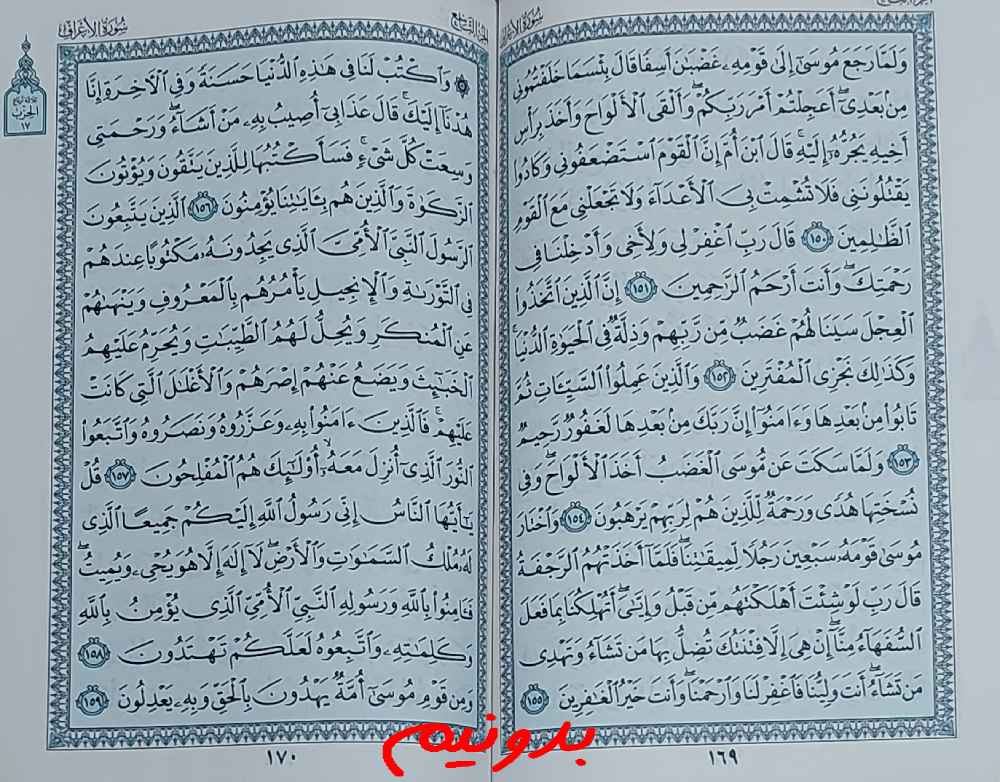 سورة الأعراف
وَلَمَّا رَجَعَ مُوسَىٰٓ إِلَىٰ قَوْمِهِۦ غَضْبَٰنَ أَسِفًا قَالَ بِئْسَمَا خَلَفْتُمُونِى
مِنۢ بَعْدِىٓ أَعَجِلْتُمْ أَمْرَ رَبِّكُمْ وَأَلْقَى ٱلْأَلْوَاحَ وَأَخَذَ بِرَأْسِ
أَخِيهِ يَجُرُّهُۥٓ إِلَيْهِ قَالَ ٱبْنَ أُمَّ إِنَّ ٱلْقَوْمَ ٱسْتَضْعَفُونِى وَكَادُوا۟
يَقْتُلُونَنِى فَلَا تُشْمِتْ بِىَ ٱلْأَعْدَآءَ وَلَا تَجْعَلْنِى مَعَ ٱلْقَوْمِ
ٱلظَّٰلِمِينَ ١٥٠ قَالَ رَبِّ ٱغْفِرْ لِى وَلِأَخِى وَأَدْخِلْنَا فِى
رَحْمَتِكَ وَأَنتَ أَرْحَمُ ٱلرَّٰحِمِينَ ١٥١ إِنَّ ٱلَّذِينَ ٱتَّخَذُوا۟
ٱلْعِجْلَ سَيَنَالُهُمْ غَضَبٌ مِّن رَّبِّهِمْ وَذِلَّةٌ فِى ٱلْحَيَوٰةِ ٱلدُّنْيَا
وَكَذَٰلِكَ نَجْزِى ٱلْمُفْتَرِينَ ١٥٢ وَٱلَّذِينَ عَمِلُوا۟ ٱلسَّيِّـَٔاتِ ثُمَّ
تَابُوا۟ مِنۢ بَعْدِهَا وَءَامَنُوٓا۟ إِنَّ رَبَّكَ مِنۢ بَعْدِهَا لَغَفُورٌ رَّحِيمٌ
١٥٣ وَلَمَّا سَكَتَ عَن مُّوسَى ٱلْغَضَبُ أَخَذَ ٱلْأَلْوَاحَ وَفِى
نُسْخَتِهَا هُدًى وَرَحْمَةٌ لِّلَّذِينَ هُمْ لِرَبِّهِمْ يَرْهَبُونَ ١٥٤ وَٱخْتَارَ
مُوسَىٰ قَوْمَهُۥ سَبْعِينَ رَجُلًا لِّمِيقَٰتِنَا فَلَمَّآ أَخَذَتْهُمُ ٱلرَّجْفَةُ
قَالَ رَبِّ لَوْ شِئْتَ أَهْلَكْتَهُم مِّن قَبْلُ وَإِيَّٰىَ أَتُهْلِكُنَا بِمَا فَعَلَ
ٱلسُّفَهَآءُ مِنَّآ إِنْ هِىَ إِلَّا فِتْنَتُكَ تُضِلُّ بِهَا مَن تَشَآءُ وَتَهْدِى
مَن تَشَآءُ أَنتَ وَلِيُّنَا فَٱغْفِرْ لَنَا وَٱرْحَمْنَا وَأَنتَ خَيْرُ ٱلْغَٰفِرِينَ ١٥٥
١٦٩
الجزء التاسع
سورة الأعراف
۞ وَٱكْتُبْ لَنَا فِى هَٰذِهِ ٱلدُّنْيَا حَسَنَةً وَفِى ٱلْءَاخِرَةِ إِنَّا
هُدْنَآ إِلَيْكَ قَالَ عَذَابِىٓ أُصِيبُ بِهِۦ مَنْ أَشَآءُ وَرَحْمَتِى
وَسِعَتْ كُلَّ شَىْءٍ فَسَأَكْتُبُهَا لِلَّذِينَ يَتَّقُونَ وَيُؤْتُونَ
ٱلزَّكَوٰةَ وَٱلَّذِينَ هُم بِـَٔايَٰتِنَا يُؤْمِنُونَ ١٥٦ ٱلَّذِينَ يَتَّبِعُونَ
ٱلرَّسُولَ ٱلنَّبِىَّ ٱلْأُمِّىَّ ٱلَّذِى يَجِدُونَهُۥ مَكْتُوبًا عِندَهُمْ
فِى ٱلتَّوْرَىٰةِ وَٱلْإِنجِيلِ يَأْمُرُهُم بِٱلْمَعْرُوفِ وَيَنْهَىٰهُمْ
عَنِ ٱلْمُنكَرِ وَيُحِلُّ لَهُمُ ٱلطَّيِّبَٰتِ وَيُحَرِّمُ عَلَيْهِمُ
ٱلْخَبَٰٓئِثَ وَيَضَعُ عَنْهُمْ إِصْرَهُمْ وَٱلْأَغْلَٰلَ ٱلَّتِى كَانَتْ
عَلَيْهِمْ فَٱلَّذِينَ ءَامَنُوا۟ بِهِۦ وَعَزَّرُوهُ وَنَصَرُوهُ وَٱتَّبَعُوا۟
ٱلنُّورَ ٱلَّذِىٓ أُنزِلَ مَعَهُۥٓ أُو۟لَٰٓئِكَ هُمُ ٱلْمُفْلِحُونَ ١٥٧ قُلْ
يَٰٓأَيُّهَا ٱلنَّاسُ إِنِّى رَسُولُ ٱللَّهِ إِلَيْكُمْ جَمِيعًا ٱلَّذِى
لَهُۥ مُلْكُ ٱلسَّمَٰوَٰتِ وَٱلْأَرْضِ لَآ إِلَٰهَ إِلَّا هُوَ يُحْىِۦ وَيُمِيتُ
فَـَٔامِنُوا۟ بِٱللَّهِ وَرَسُولِهِ ٱلنَّبِىِّ ٱلْأُمِّىِّ ٱلَّذِى يُؤْمِنُ بِٱللَّهِ
وَكَلِمَٰتِهِۦ وَٱتَّبِعُوهُ لَعَلَّكُمْ تَهْتَدُونَ ١٥٨
وَمِن قَوْمِ مُوسَىٰٓ أُمَّةٌ يَهْدُونَ بِٱلْحَقِّ وَبِهِۦ يَعْدِلُونَ ١٥٩
١٧٠
ثلاثة أرباع
الحزب
١٧
بدونيم